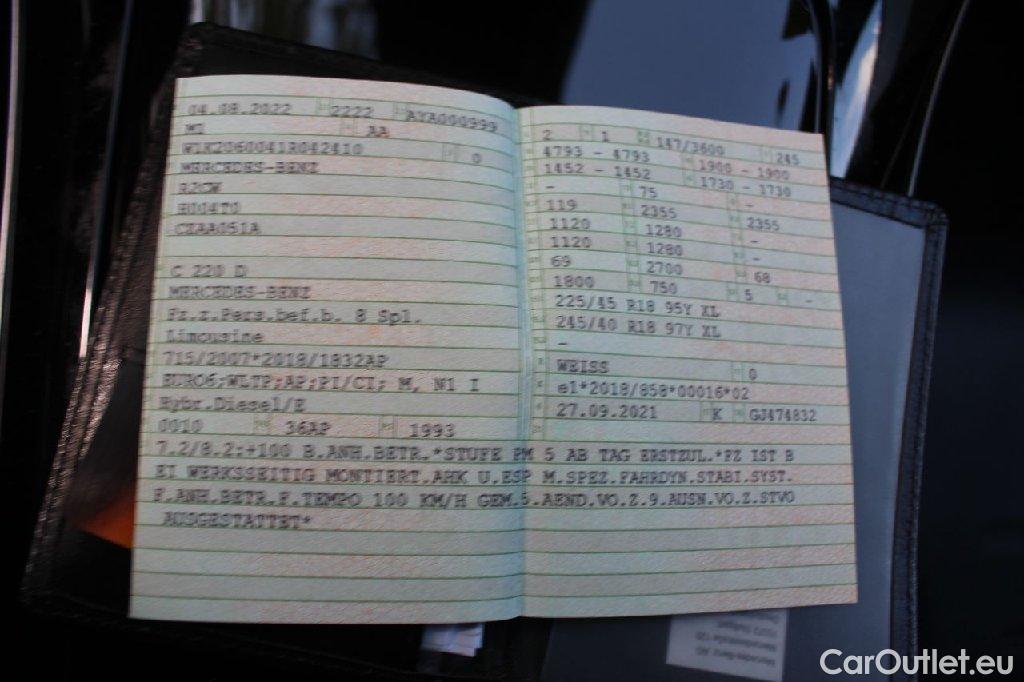 04.08.2022 2222 AYA000999
M1 AA
W1K2060041R042410 0
MERCEDES-BENZ
R2CW
H004T0
CZAA051A
C 220 D
MERCEDES-BENZ
Fz.z.Pers.bef.b. 8 Spl.
Limousine
715/2007*2018/1832AP
EURO6;WLTP;AP;PI/CI; M, N1 I
Hybr.Diesel/E
0010 36AP 1993
2 1 147/3600 245
4793 - 4793 1900 - 1900
1452 - 1452 1730 - 1730
- 75 -
119 2355 2355
1120 1280 -
1120 1280 -
69 2700 68
1800 750 5 -
225/45 R18 95Y XL
245/40 R18 97Y XL
-
WEISS 0
e1*2018/858*00016*02
27.09.2021 K GJ474832
7.2/8.2:+100 B.ANH.BETR.*STUFE PM 5 AB TAG ERSTZUL.*FZ IST B
EI WERKSSEITIG MONTIERT.AHK U.ESP M.SPEZ.FAHRDYN.STABI.SYST.
F.ANH.BETR.F.TEMPO 100 KM/H GEM.5.AEND.VO.Z.9.AUSN.VO.Z.STVO
AUSGESTATTET*
Mercedes-Benz AG
Mercedesstraße 120
70372 Stuttgart
CarOutlet.eu